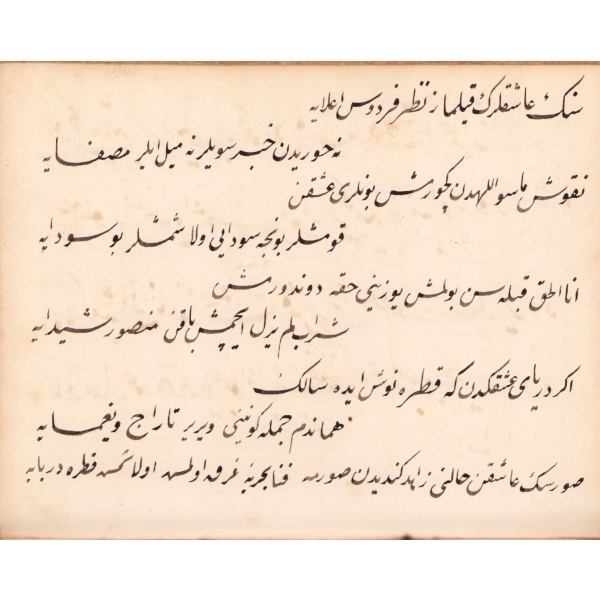 سنك عاشقلرك قيلماز نظر فردوس اعلايه
نه حوريدن خبر سويلر نه ميل ايلر مصفايه
نقوش ماسواللهدن كچورمش بونلرى عشقن
قومشلر بونجه سودايى اولاشمشلر بو سودايه
انا الحق قبله سن بولمش يوزينى حقه دوندورمش
شراب لم يزل ايچمش باقن منصور شيدايه
اكر درياى عشقكدن كه قطره نوش ايده سالك
هماندم جمله كونينى ويرير تاراج و يغمايه
صورسك عاشقن حالنى زاهد كنديدن صورمه فنا بحرينه غرق اولمش اولاشمش قطره دريايه